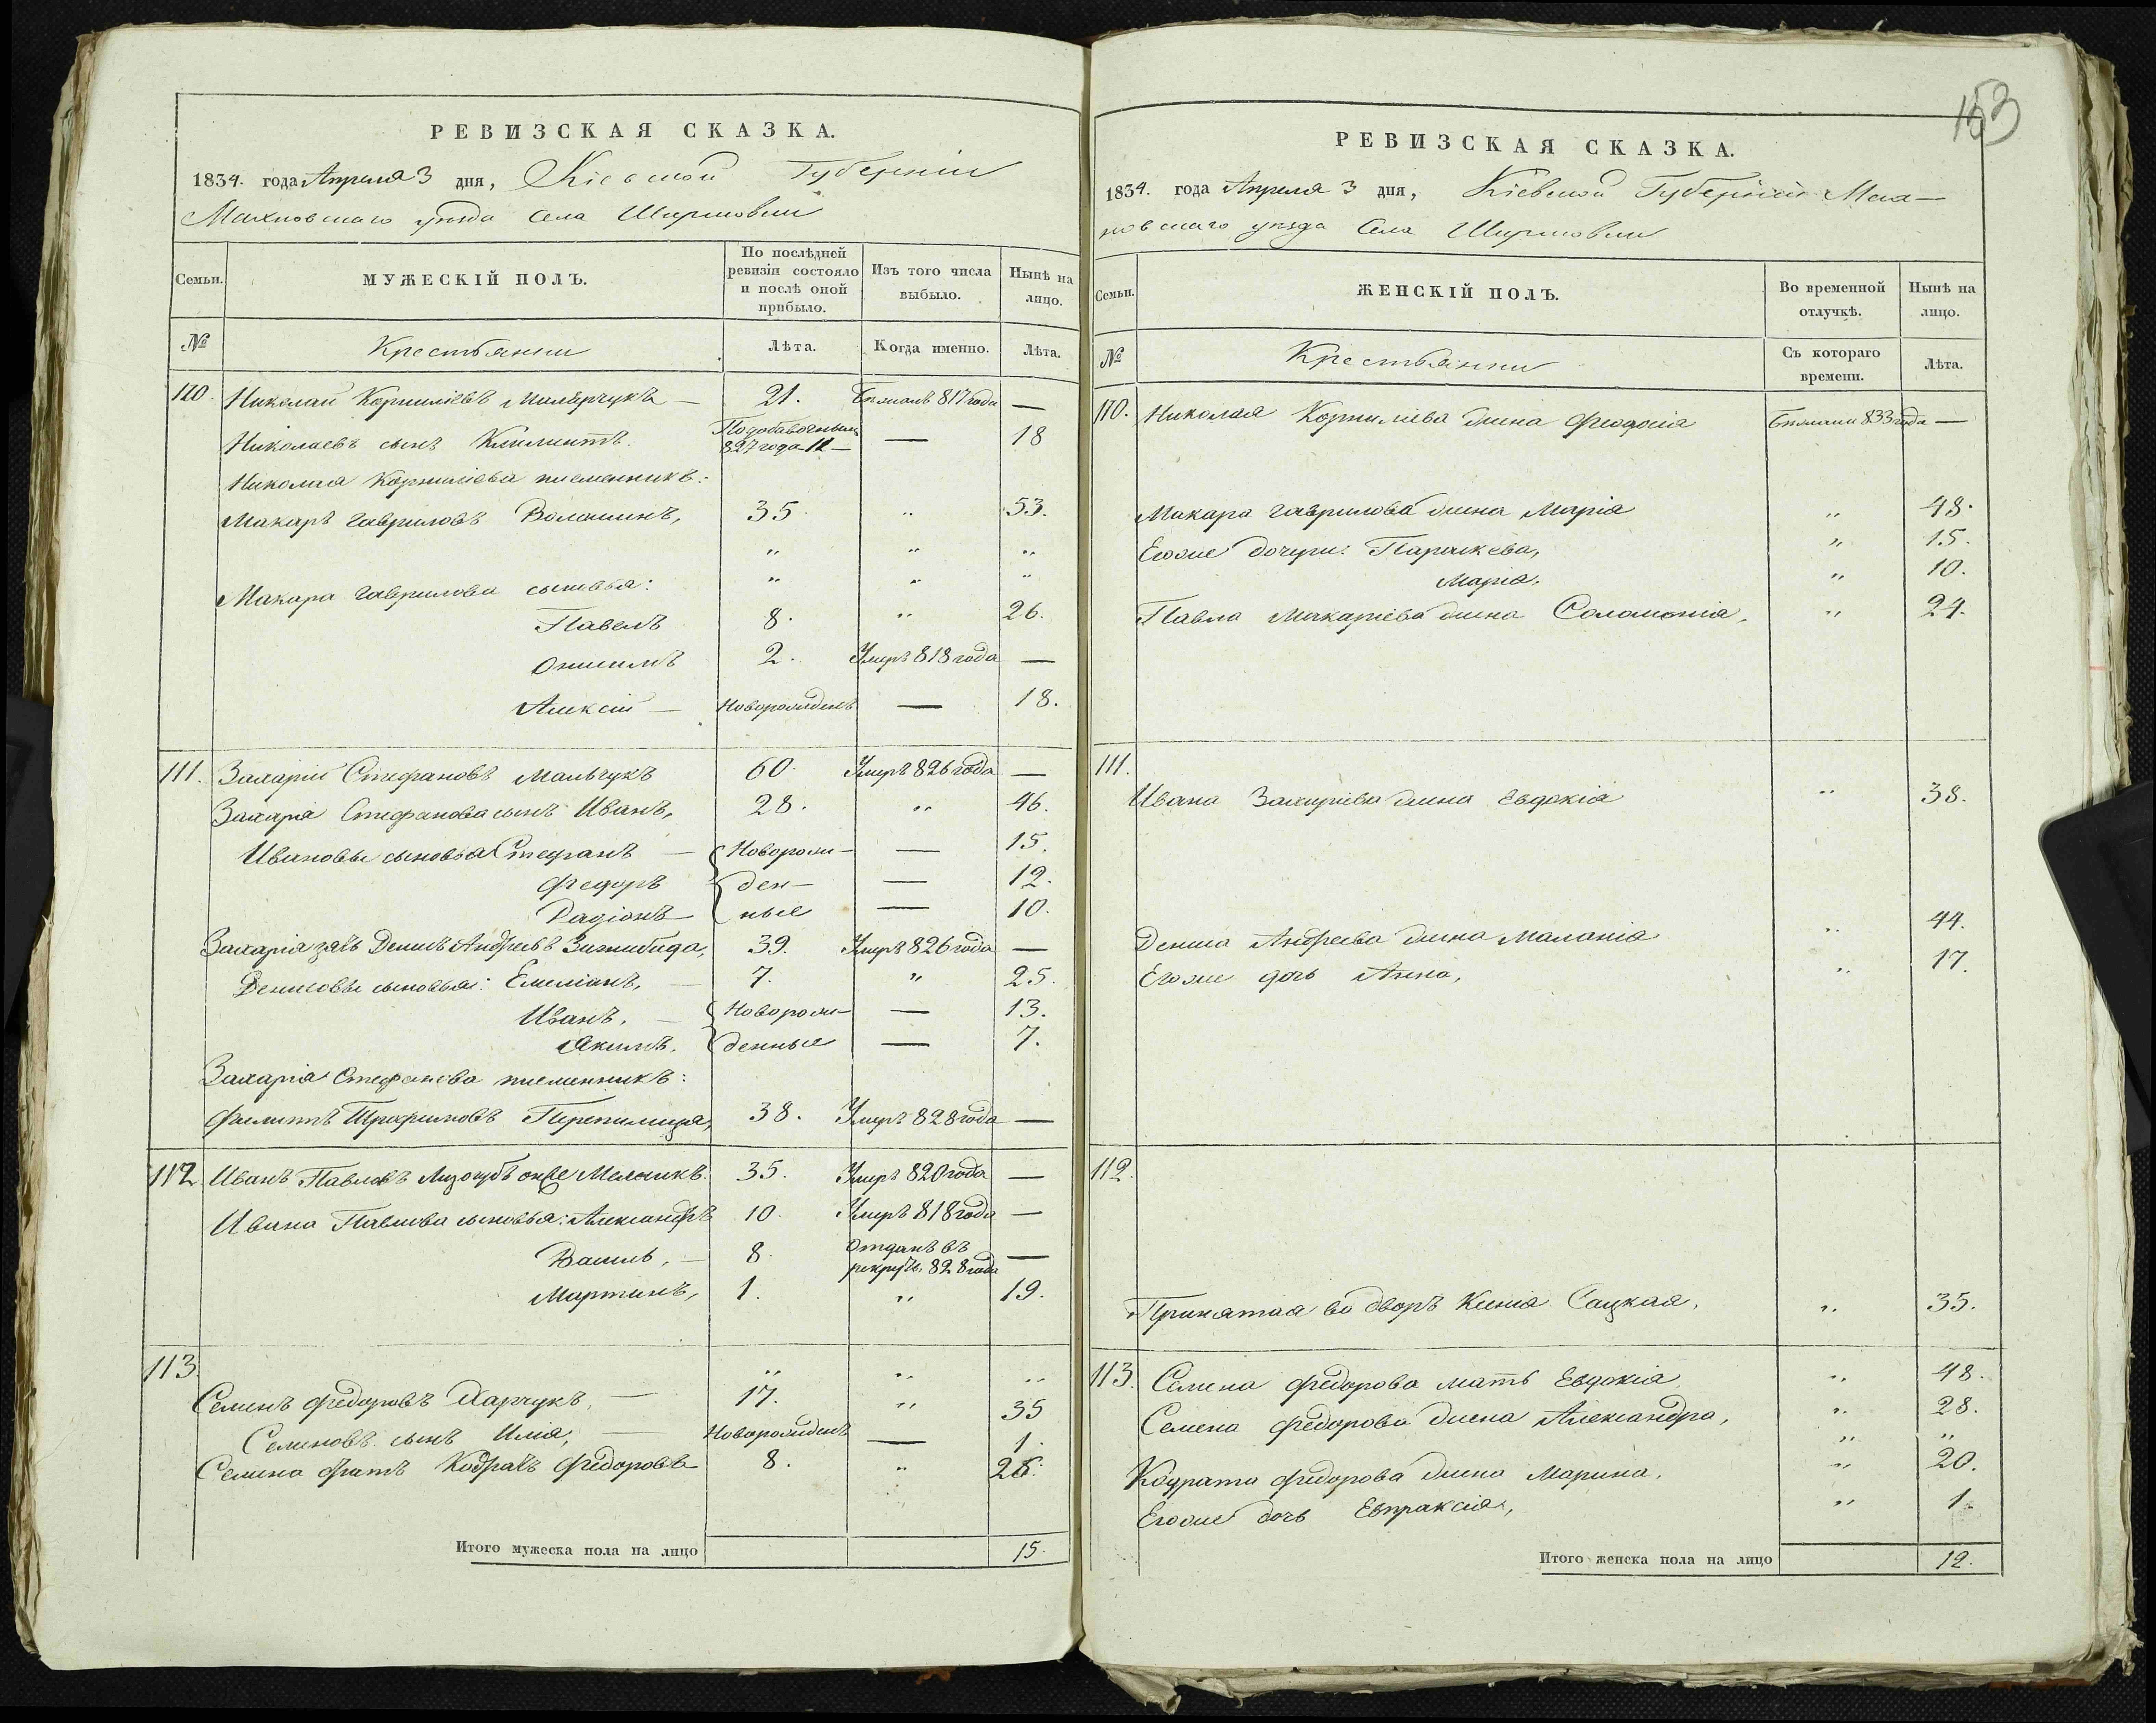 РЕВИЗСКАЯ СКАЗКА.
1834. года Апреля 3 дня, Кіевской Губерніи
Махновскаго уезда Села Ширмовки
Семьи.
МУЖЕСКІЙ ПОЛЪ.
По послѣдней ревизіи состояло и послѣ оной прибыло.
Изъ того числа выбыло.
Нынѣ на лицо.
№ Крестьянии Лѣта. Когда именно. Лѣта.
110. Николай Корниліевъ — 21. Бежалъ 817 года —
Николаевъ сынъ Климентъ 827 года 11 — — 18
Николая Корниліева племенникъ:
Макаръ Гавриловъ Волошинъ, 35 „ 53.
„ „ „
Макара Гаврилова сыновья: „ „ „
Павелъ 8. „ 26.
Онисимъ 2. Умеръ 818 года —
Алексій — Новорожденъ — 18.
111. Захарій Стефановъ Мальчукъ 60. Умеръ 826 года —
Захарія Стефанова сынъ Иванъ, 28. „ 46.
Ивановы сыновья Стефанъ — Новорож- — 15.
Федоръ ден- — 12.
Радіонъ ные — 10.
Захарія зять Денисъ Андреевъ 39. Умеръ 826 года —
Денисовы сыновья: Емеліанъ, — 7. „ 25.
Иванъ, — Новорож- — 13.
Якимъ. денные — 7.
Захарія Стефанова племенникъ:
Филиппъ Трофимовъ Перепилица, 38. Умеръ 828 года —
112. Иванъ Павловъ Лизогубъ онже Мельникъ. 35. Умеръ 820 года —
Ивана Павлова сыновья: Александръ 10. Умеръ 818 года —
Василь, — 8. Отданъ въ рекруты 828 года —
Мартинъ, 1. „ 19.
113. „ „ „
Семенъ Федоровъ Харчукъ, — 17. „ 35
Семеновъ сынъ Илія, — Новорожденъ — 1.
Семена братъ Кодратъ Федоровъ 8. „ 26.
Итого мужеска пола на лицо 15.
153
РЕВИЗСКАЯ СКАЗКА.
1834. года Апреля 3 дня, Кіевской Губерніи Мах-
новскаго уезда Села Ширмовки
Семьи.
ЖЕНСКІЙ ПОЛЪ.
Во временной отлучкѣ.
Нынѣ на лицо.
№ Крестьянии Съ котораго времени. Лѣта.
110. Николая Корнилиева жена Феодосія Бежала 833 года —
Макара Гаврилова жена Марія „ 48.
Егоже дочери: Параскева, „ 15.
Марія, „ 10.
Павла Макаріева жена Соломонія, „ 24.
111.
Ивана Захаріева жена Евдокія „ 38.
Дениса Андреева жена Маланія „ 44.
Егоже дочь Анна, „ 17.
112.
Принятая во дворъ Ксенія Сацкая, „ 35.
113. Семена Федорова мать Евдокія „ 48.
Семена Федорова жена Александра, „ 28.
„ „
Кодрата Федорова жена Марина, „ 20.
Егоже дочь Евпраксія, „ 1.
Итого женска пола на лицо 12.